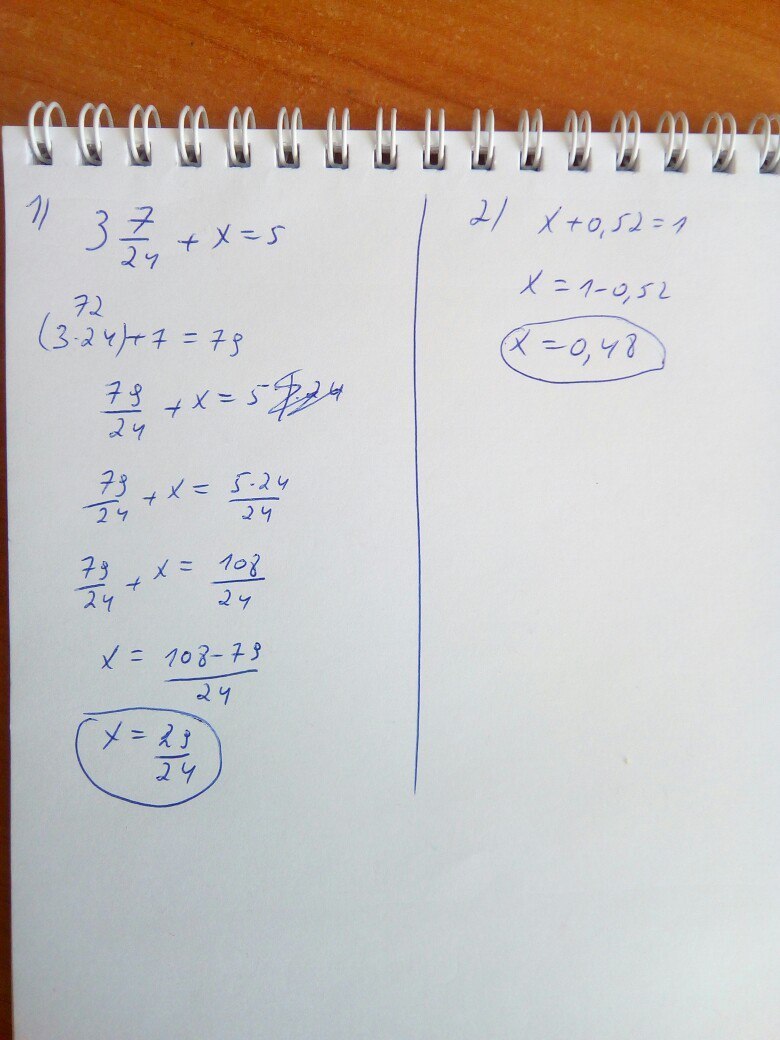 1)
3 7/24 + x = 5
72
(3·24)+7 = 79
79/24 + x = 5
79/24 + x = 5·24/24
79/24 + x = 108/24
x = 108-79/24
x = 29/24
2) x+0,52=1
x = 1-0,52
x = 0,48